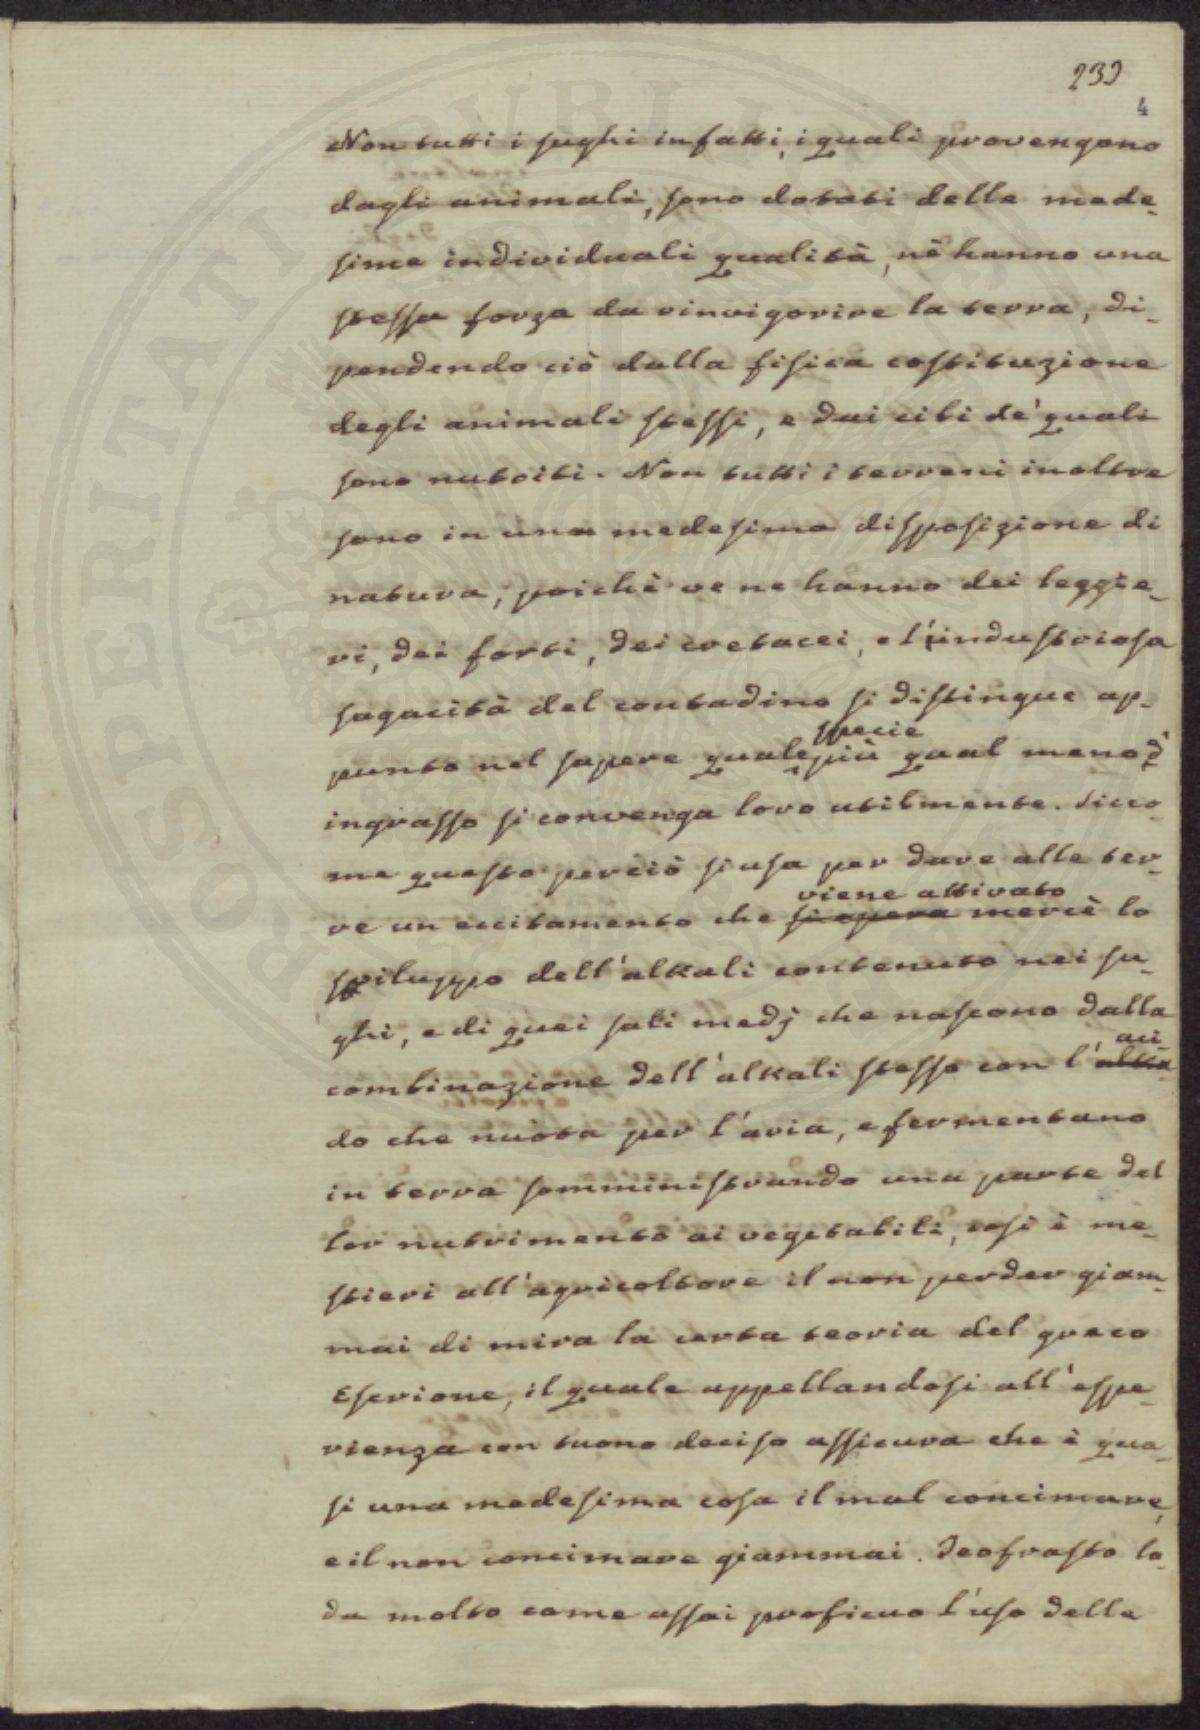 239
4
Non tutti i sughi infatti, i quali provengono
dagli animali, sono dotati delle mede-
sime individuali qualità, nè hanno una
stessa forza da rinvigorire la terra, di-
pendendo ciò dalla fisica costituzione
degli animali stessi, e dai cibi de' quali
sono nutriti. Non tutti i terreni inoltre
sono in una medesima disposizione di
natura, poichè ve ne hanno dei leggie-
ri, dei forti, dei cretacei, e l'industriosa
sagacità del contadino si distingue ap-
punto nel sapere quale specie più qual meno d'
ingrasso si convenga loro utilmente. Sicco-
me questo perciò si usa per dare alle ter-
re un eccitamento che si opera viene attivato mercè lo
sviluppo dell'alkali contenuto nei su-
ghi, e di quei sali medj che nascono dalla
combinazione dell'alkali stesso con l'alka aci-
do che nuota per l'aria, e fermentano
in terra somministrando una parte del
lor nutrimento ai vegetabili, così è me-
stieri all'agricoltore il non perder giam-
mai di mira la certa teoria del greco
Escrione, il quale appellandosi all'espe-
rienza con tuono deciso assicura che è qua-
si una medesima cosa il mal concimare,
e il non concimare giammai. Teofrasto lo-
da molto come assai proficuo l'uso delle
PROSPERITATI PUBLI